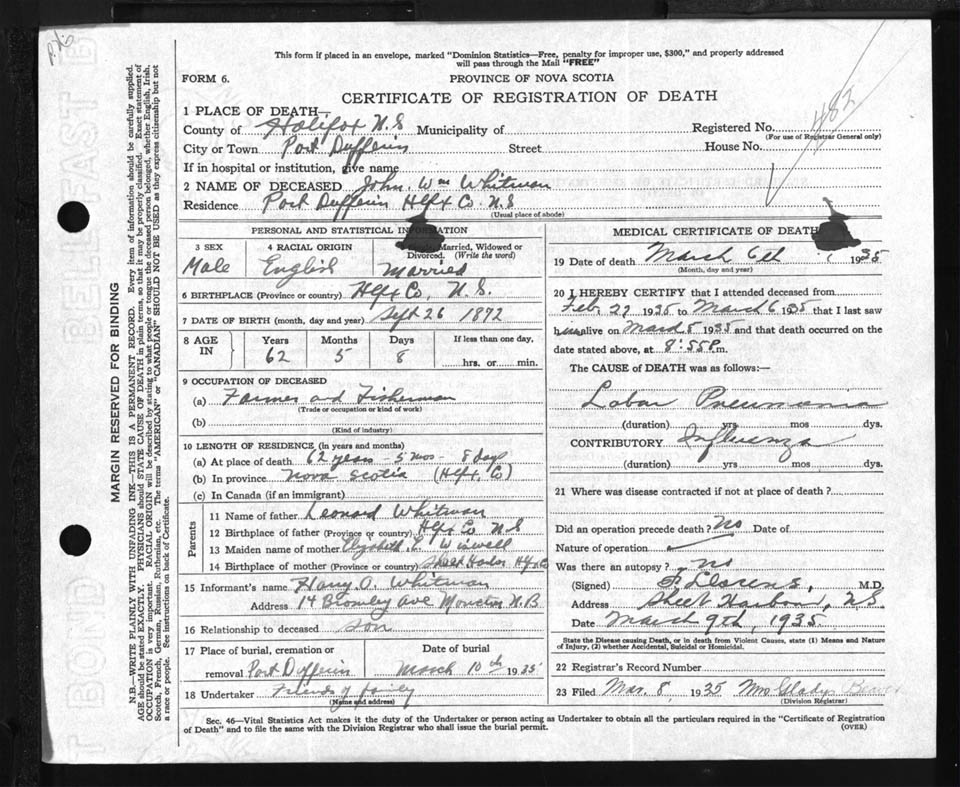 P.X.
This form if placed in an envelope, marked "Dominion Statistics—Free, penalty for improper use, $300," and properly addressed
will pass through the Mail "FREE"
FORM 6.
PROVINCE OF NOVA SCOTIA
CERTIFICATE OF REGISTRATION OF DEATH
482
1 PLACE OF DEATH—
County of Halifax N.S Municipality of
Registered No.
(For use of Registrar General only)
City or Town Port Dufferin Street House No.
If in hospital or institution, give name
2 NAME OF DECEASED John Wm Whitman
Residence Port Dufferin Hlfx Co N.S
(Usual place of abode)
PERSONAL AND STATISTICAL INFORMATION
3 SEX 4 RACIAL ORIGIN Married, Widowed or
Divorced. (Write the word)
Male English Married
6 BIRTHPLACE (Province or country) Hlfx Co, N.S.
7 DATE OF BIRTH (month, day and year) Sept 26 1872
8 AGE IN Years Months Days If less than one day,
62 5 8 hrs. or min.
9 OCCUPATION OF DECEASED
(a) Farmer and Fisherman
(Trade or occupation or kind of work)
(b)
(Kind of industry)
10 LENGTH OF RESIDENCE (in years and months)
(a) At place of death 62 years - 5 mos - 8 days
(b) In province Nova Scotia (Hlfx. Co)
(c) In Canada (if an immigrant)
Parents
11 Name of father Leonard Whitman
12 Birthplace of father (Province or country) Hlfx Co N.S
13 Maiden name of mother Elizabeth E.
14 Birthplace of mother (Province or country) Sheet Harbor Hfx Co
15 Informant's name Harry A. Whitman
Address 14 Bromley Ave Moncton N.B
16 Relationship to deceased son
17 Place of burial, cremation or removal Port Dufferin
Date of burial
March 10th 1935
18 Undertaker Friends of family
(Name and address)
MEDICAL CERTIFICATE OF DEATH
19 Date of death March 6th 1935
(Month, day and year)
20 I HEREBY CERTIFY that I attended deceased from
Feb 27 1935 to March 6 1935 that I last saw
him alive on March 5 1935 and that death occurred on the
date stated above, at 8:55 P.m.
The CAUSE of DEATH was as follows:—
Lobar Pneumonia
(duration) yrs mos dys.
CONTRIBUTORY Influenza
(duration) yrs mos dys.
21 Where was disease contracted if not at place of death?
Did an operation precede death? No Date of
Nature of operation
Was there an autopsy? no
(Signed) M.D.
Address Sheet Harbour, N.S.
Date March 9th, 1935
State the Disease causing Death, or in death from Violent Causes, state (1) Means and Nature
of Injury, (2) whether Accidental, Suicidal or Homicidal.
22 Registrar's Record Number
23 Filed Mar. 8, 1935 Mrs Gladys
(Division Registrar)
Sec. 46—Vital Statistics Act makes it the duty of the Undertaker or person acting as Undertaker to obtain all the particulars required in the "Certificate of Registration
of Death" and to file the same with the Division Registrar who shall issue the burial permit.
(OVER)
MARGIN RESERVED FOR BINDING
N.B.—WRITE PLAINLY WITH UNFADING INK—THIS IS A PERMANENT RECORD. Every item of information should be carefully supplied.
AGE should be stated EXACTLY. PHYSICIANS should STATE CAUSE OF DEATH in plain terms, so that it may be properly classified. Exact statement of
OCCUPATION is very important. RACIAL ORIGIN will be described by stating to what people or tongue the deceased person belonged, whether English, Irish,
Scotch, French, German, Russian, Ruthenian, etc. The terms "AMERICAN" or "CANADIAN" SHOULD NOT BE USED as they express citizenship but not
a race or people. See instructions on back of Certificate.